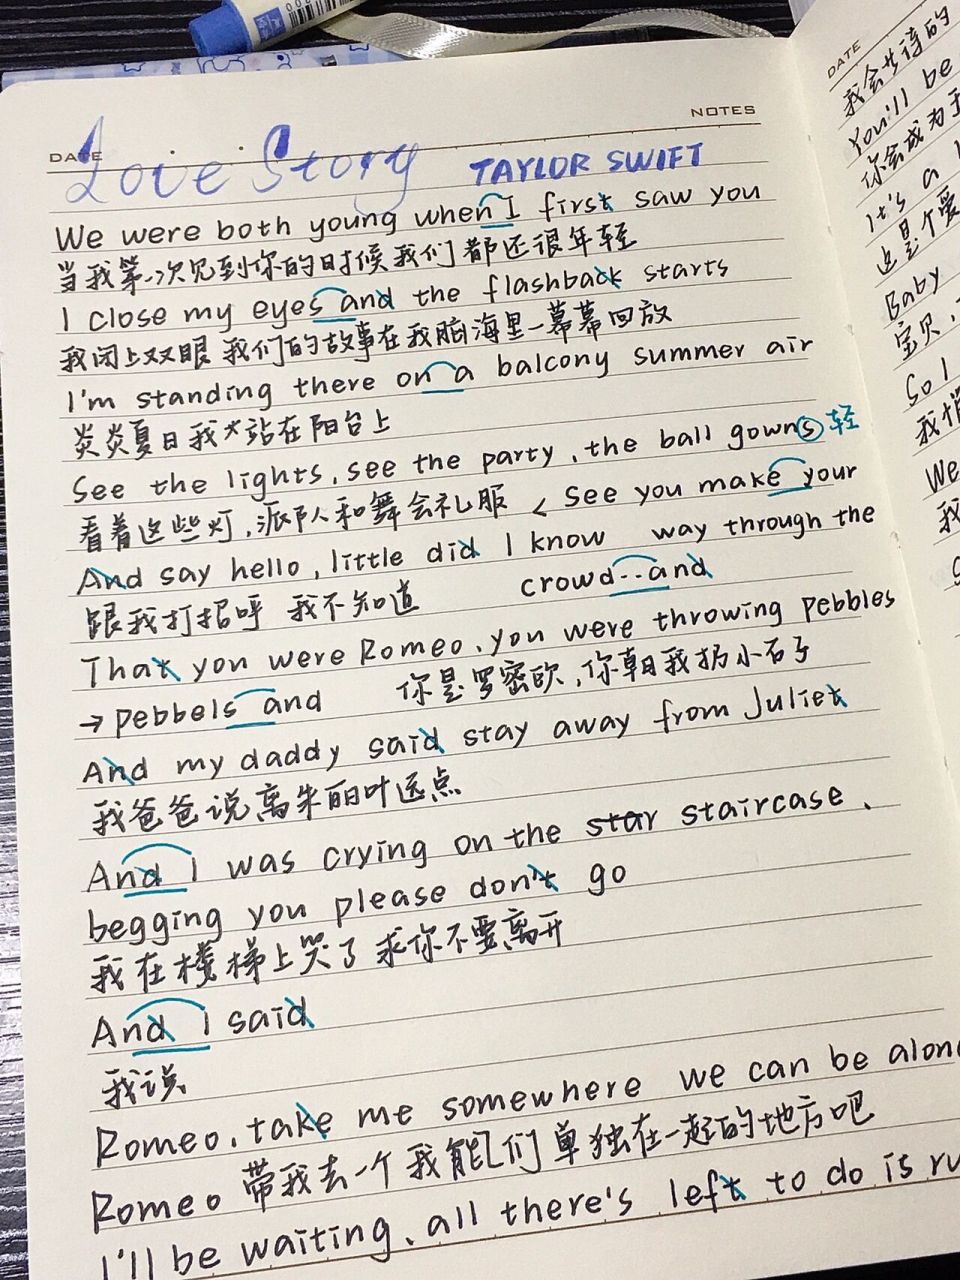 DATE
NOTES
Love Story TAYLOR SWIFT
We were both young when I first saw you
当我第一次见到你的时候我们都还很年轻
I close my eyes and the flashback starts
我闭上双眼 我们的故事在我脑海里一幕幕回放
I'm standing there on a balcony summer air
炎炎夏日我站在阳台上
See the lights, see the party, the ball gowns 轻
看着这些灯,派队人和舞会礼服 < See you make your
And say hello, little did I know way through the
跟我打招呼 我不知道 crowd..and
That you were Romeo, you were throwing pebbles
→ pebbels and 你是罗密欧,你朝我扔小石子
And my daddy said stay away from Juliet
我爸爸说离朱丽叶远点
And I was crying on the star staircase、
begging you please don't go
我在楼梯上哭了求你不要离开
And I said
我说
Romeo, take me somewhere we can be alone
Romeo 带我去一个我能们单独在一起的地方吧
I'll be waiting、all there's left to do is ru
DATE
我会共谆的
You'll be
你会成为王
It's a l
这是个爱
Baby
宝贝,
So I
我悄
We
我